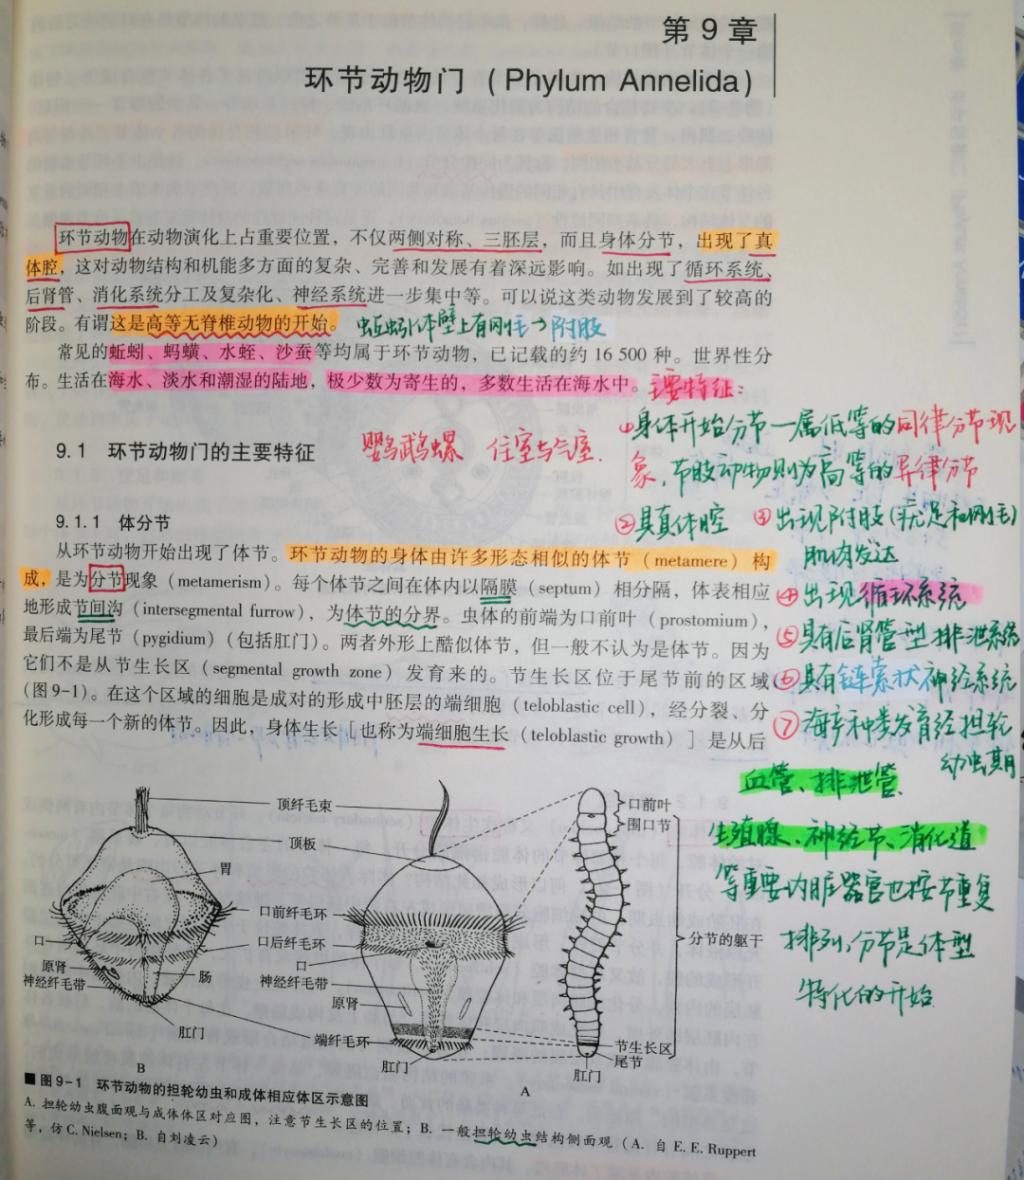 第 9 章
环节动物门（Phylum Annelida）
环节动物在动物演化上占重要位置，不仅两侧对称、三胚层，而且身体分节，出现了真
体腔，这对动物结构和机能多方面的复杂、完善和发展有着深远影响。如出现了循环系统、
后肾管、消化系统分工及复杂化、神经系统进一步集中等。可以说这类动物发展到了较高的
阶段。有谓这是高等无脊椎动物的开始。 蚯蚓体壁上有刚毛→附肢
常见的蚯蚓、蚂蟥、水蛭、沙蚕等均属于环节动物，已记载的约 16 500 种。世界性分
布。生活在海水、淡水和潮湿的陆地，极少数为寄生的，多数生活在海水中。 主要特征：
9.1 环节动物门的主要特征
鹦鹉螺 住室与气室.
①身体开始分节—属低等的同律分节现
象，节肢动物则为高等的异律分节
②具真体腔 ③出现附肢(疣足和刚毛)
肌肉发达
④出现循环系统
⑤具有后肾管型排泄系统
⑥具有链索状神经系统
⑦海产种类发育经担轮
幼虫期
9.1.1 体分节
从环节动物开始出现了体节。环节动物的身体由许多形态相似的体节（metamere）构
成，是为分节现象（metamerism）。每个体节之间在体内以隔膜（septum）相分隔，体表相应
地形成节间沟（intersegmental furrow），为体节的分界。虫体的前端为口前叶（prostomium），
最后端为尾节（pygidium）（包括肛门）。两者外形上酷似体节，但一般不认为是体节。因为
它们不是从节生长区（segmental growth zone）发育来的。节生长区位于尾节前的区域
（图 9-1）。在这个区域的细胞是成对的形成中胚层的端细胞（teloblastic cell），经分裂、分
化形成每一个新的体节。因此，身体生长［也称为端细胞生长（teloblastic growth）］是从后
血管、排泄管.
生殖腺、神经节、消化道
等重要内脏器官也按节重复
排列，分节是体型
特化的开始
顶纤毛束
顶板
胃
口前纤毛环
口后纤毛环
口
口
原肾
神经纤毛带
肠
神经纤毛带
原肾
肛门
端纤毛环
肛门
口前叶
围口节
分节的躯干
节生长区
尾节
肛门
B
A
■ 图 9-1 环节动物的担轮幼虫和成体相应体区示意图
A. 担轮幼虫腹面观与成体体区对应图，注意节生长区的位置；B. 一般担轮幼虫结构侧面观（A. 自 E. E. Ruppert
等，仿 C. Nielsen；B. 自刘凌云）